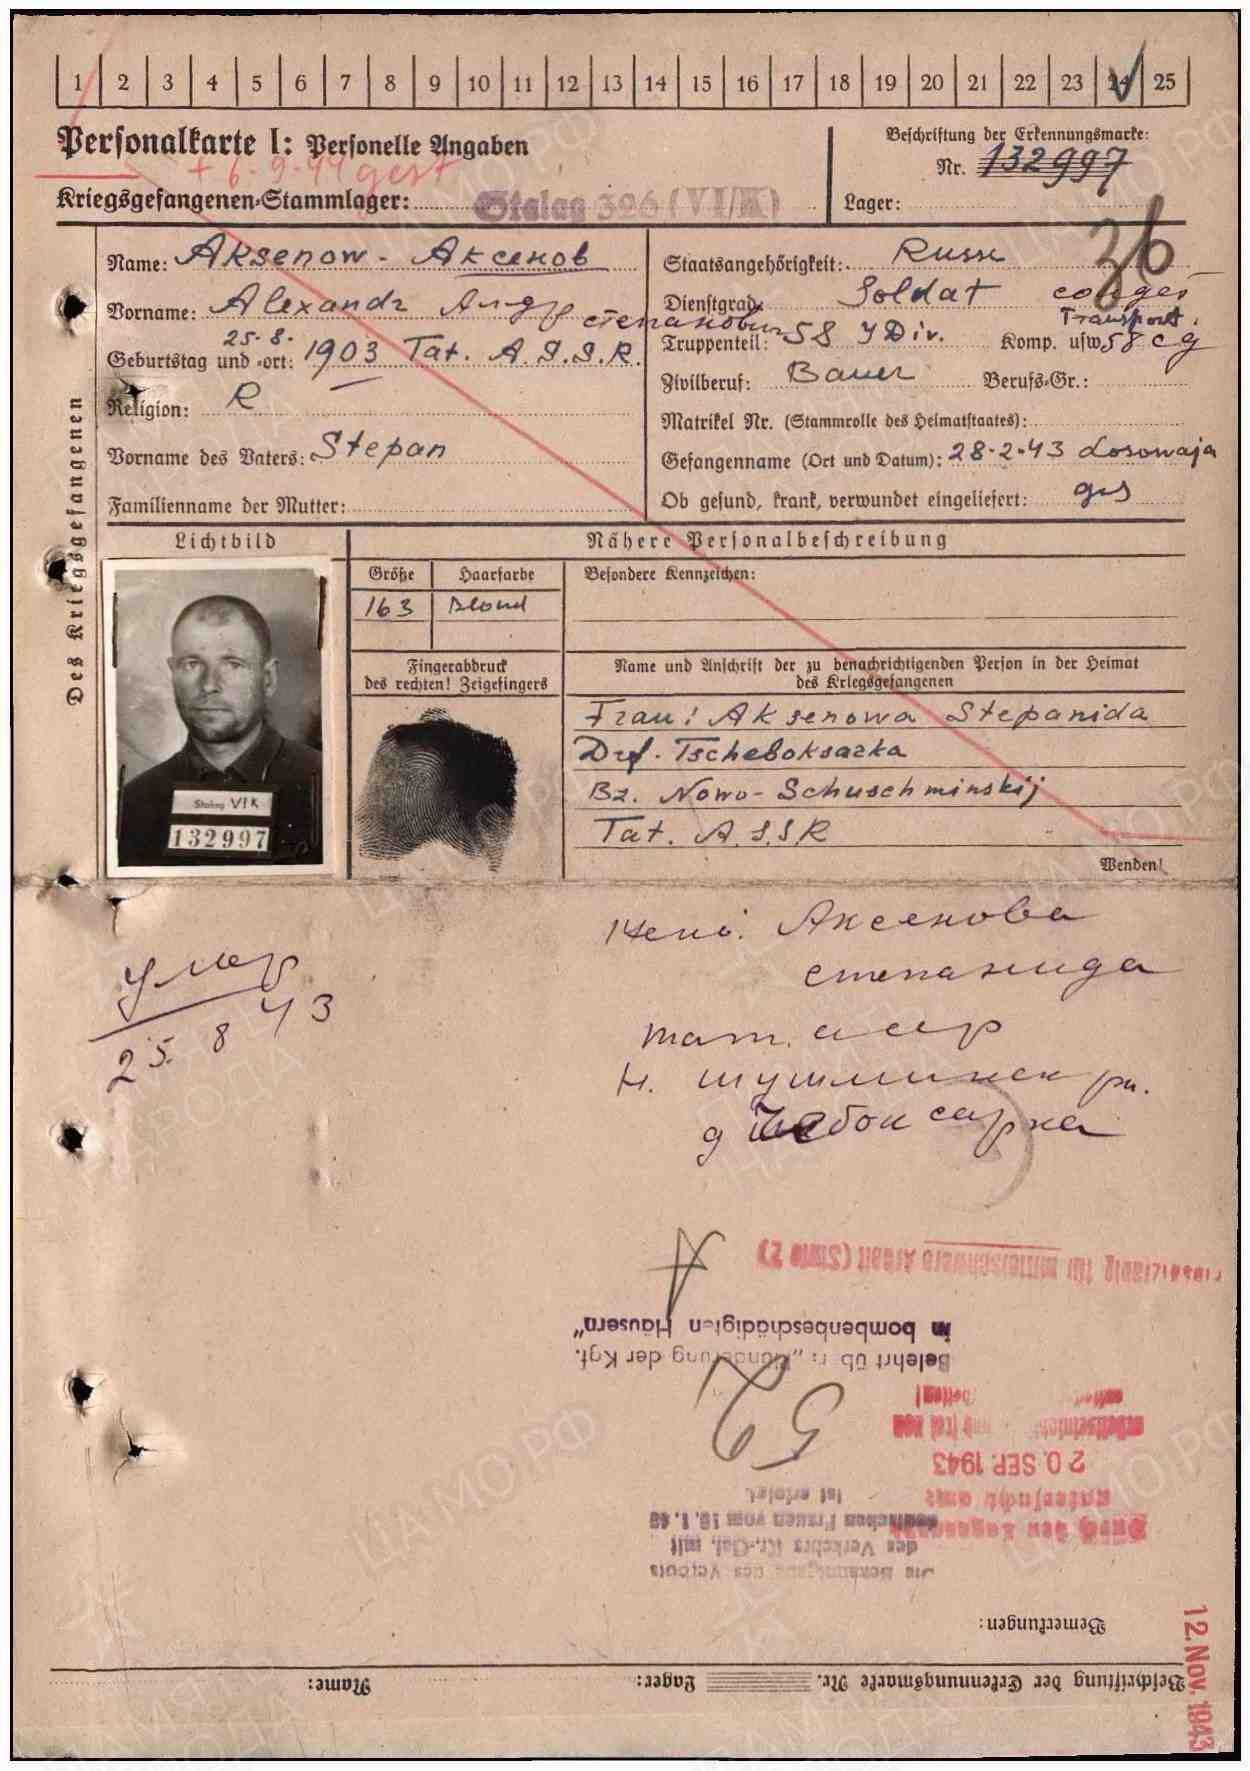 1 2 3 4 5 6 7 8 9 10 11 12 13 14 15 16 17 18 19 20 21 22 23 24 25
Personalkarte I: Personelle Angaben
+ 6.9.44 gest
Kriegsgefangenen-Stammlager: Stalag 326 (VI/K)
Beschriftung der Erkennungsmarke:
Nr. 132997
Lager:
36
Des Kriegsgefangenen
Name: Aksenow - Аксенов
Vorname: Alexandr
степанович
Geburtstag und -ort: 25.8.1903 Tat. A.S.S.R.
Religion: R
Vorname des Vaters: Stepan
Familienname der Mutter:
Staatsangehörigkeit: Russe
Dienstgrad: Soldat
Truppenteil: 58 J Div. Komp. usw.
Transport.
Zivilberuf: Bauer Berufs-Gr.:
Matrikel Nr. (Stammrolle des Heimatstaates):
Gefangenname (Ort und Datum): 28-2-43 Losowaja
Ob gesund, krank, verwundet eingeliefert: ges
Lichtbild
Stalag VI K
132997
Nähere Personalbeschreibung
Größe Haarfarbe Besondere Kennzeichen:
163 Blond
Fingerabdruck
des rechten! Zeigefingers
Name und Anschrift der zu benachrichtigenden Person in der Heimat
des Kriegsgefangenen
Frau: Aksenowa Stepanida
Drf. Tscheboksarka
Bz. Nowo-Schuschminskij
Tat. A.S.S.R
Wenden!
Умер
25. 8 43
Жена: Аксенова
степанида
тат. асср
Н. шушминск рн.
д Чебоксарка
für mittelschwere Arbeit (Stufe 2)
in bombenbeschädigten Häusern"
Belehrt über: „Plünderung der Kgf.
52
20. SEP. 1943
ist erfolgt.
deutschen Frauen vom 16.1.43
des Verkehrs Kr.-Gef. mit
Die Bekanntgabe des Verbots
Bemerkungen:
12. Nov. 1943
Beschriftung der Erkennungsmarke Nr. Lager: Name: